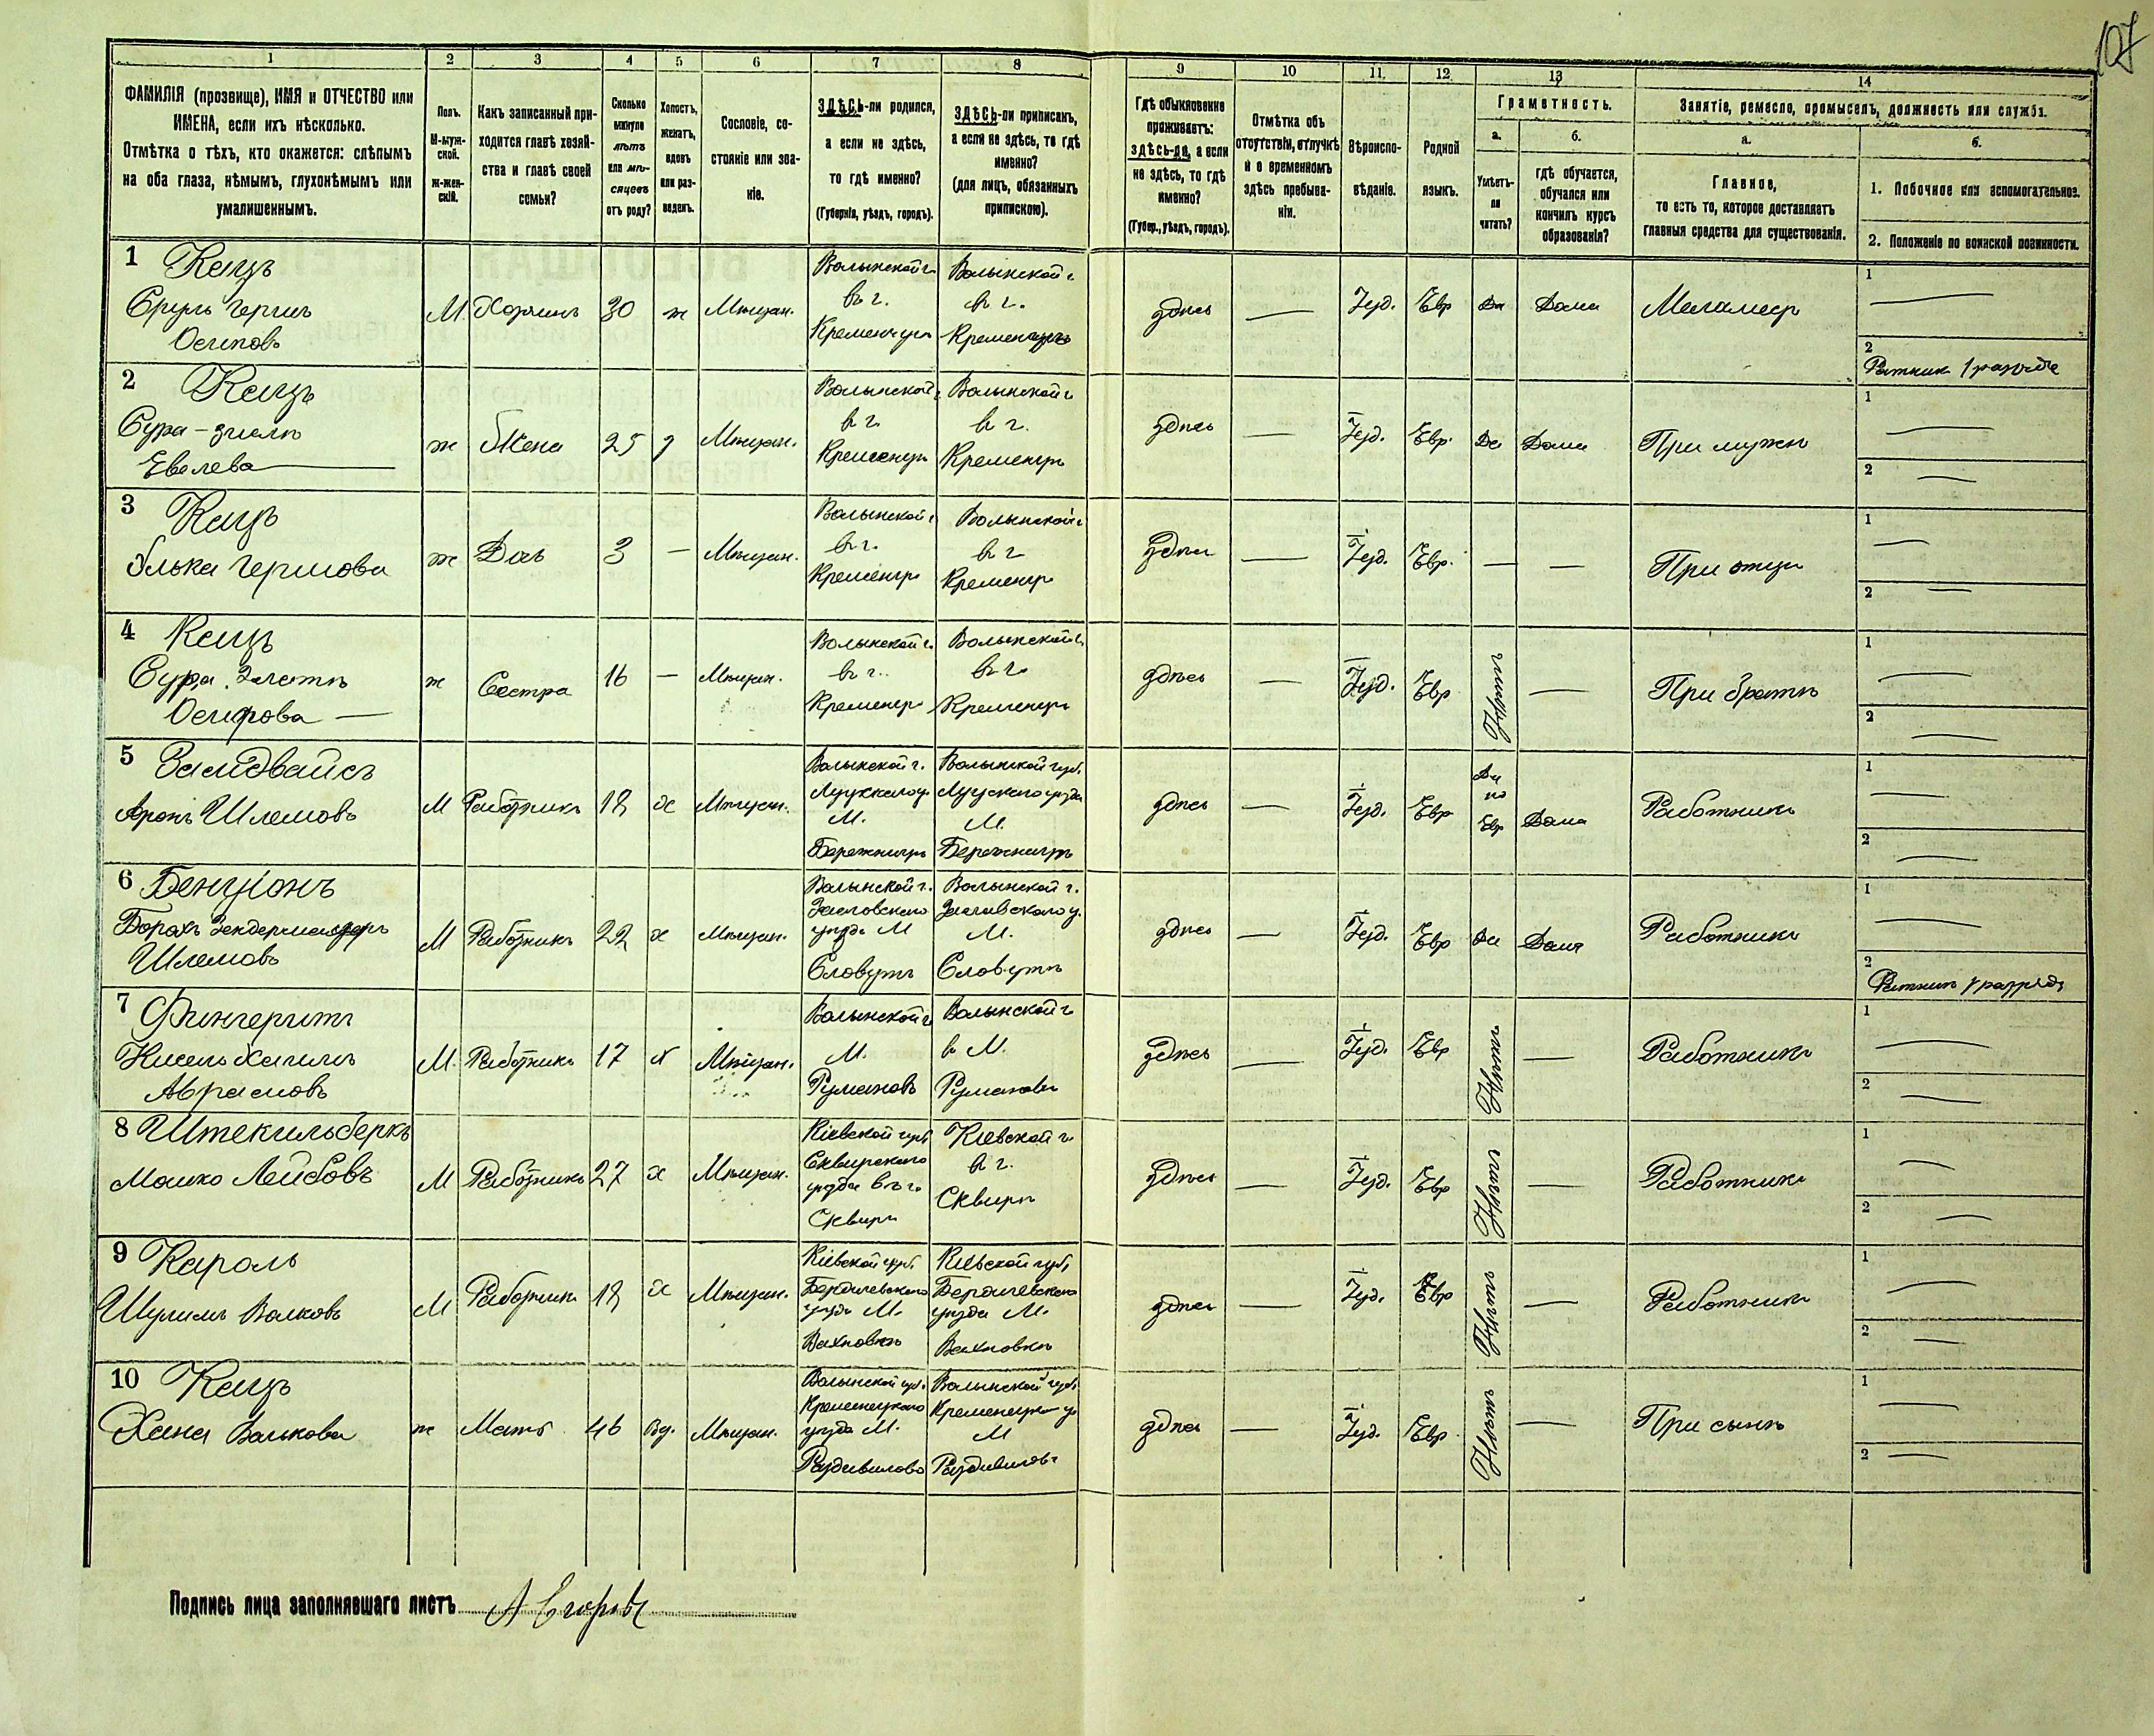 107
1 2 3 4 5 6 7 8 9 10 11. 12. 13 14
ФАМИЛІЯ (прозвище), ИМЯ и ОТЧЕСТВО или
ИМЕНА, если ихъ нѣсколько.
Отмѣтка о тѣхъ, кто окажется: слѣпымъ
на оба глаза, нѣмымъ, глухонѣмымъ или
умалишеннымъ.
Полъ.
М-муж-
ской.
Ж-жен-
скій.
Какъ записанный при-
ходится главѣ хозяй-
ства и главѣ своей
семьи?
Сколько
минуло
лѣтъ
или мѣ-
сяцевъ
отъ роду?
Холостъ,
женатъ,
вдовъ
или раз-
веденъ.
Сословіе, со-
стояніе или зва-
ніе.
ЗДѢСЬ-ли родился,
а если не здѣсь,
то гдѣ именно?
(Губернія, уѣздъ, городъ).
ЗДѢСЬ-ли приписанъ,
а если не здѣсь, то гдѣ
именно?
(для лицъ, обязанныхъ
припискою).
Гдѣ обыкновенно
проживаетъ:
здѣсь-ли, а если
не здѣсь, то гдѣ
именно?
(Губер., уѣздъ, городъ).
Отмѣтка объ
отсутствіи, отлучкѣ
и о временномъ
здѣсь пребыва-
ніи.
Вѣроиспо-
вѣданіе.
Родной
языкъ.
Грамотность.
а.
Умѣетъ-
ли
читать?
б.
гдѣ обучается,
обучался или
кончилъ курсъ
образованія?
Занятіе, ремесло, промыселъ, должность или служба.
а.
Главное,
то есть то, которое доставляетъ
главныя средства для существованія.
б.
1. Побочное или вспомогательное.
2. Положеніе по воинской повинности.
1 Кацъ
Сруль Герш
Осиповъ
М. Хозяинъ 30 ж Мѣщан.
Волынской г.
въ г.
Кременцъ
Волынской г.
въ г.
Кременцъ
здѣсь — Іуд. Евр Да Дома Меламедъ
1 —
2 Ратник 1 разряда
2 Кацъ
Сура-
Евелева
ж Жена 25 з Мѣщан.
Волынской г.
въ г.
Кременцъ
Волынской г.
въ г.
Кременцъ
здѣсь — Іуд. Евр. Да Дома При мужѣ
1 —
2 —
3 Кацъ
Элька Гершова
ж Дочь 3 — Мѣщан.
Волынской г.
въ г.
Кременцъ
Волынской г.
въ г
Кременцъ
здѣсь — Іуд. Евр. — — При отцѣ
1 —
2 —
4 Кацъ
Сура Златѣ
Осипова —
ж Сестра 16 — Мѣщан.
Волынской г.
въ г.
Кременцъ
Волынской г.
въ г.
Кременцъ
здѣсь — Іуд. Евр Нѣтъ — При братѣ
1 —
2 —
5 Залцвайсъ
Аронъ Шлемовъ
М Работникъ 18 х Мѣщан.
Волынской г.
Луцкаго у.
М.
Бережницъ
Волынской губ.
Луцкаго уѣзда
М.
Бережницъ
здѣсь — Іуд. Евр Да по Евр Дома Работникъ
1 —
2 —
6 Бенціонъ
Борахъ
Шлемовъ
М Работникъ 22 х Мѣщан.
Волынской г.
Заславскаго
уѣзда М
Славутѣ
Волынской г.
Заславскаго у.
М.
Славутѣ
здѣсь — Іуд. Евр Да Дома Работникъ
1 —
2 Ратник 1 разряда
7 Фингерутъ
Нисель Хаимъ
Аврамовъ
М. Работникъ 17 х Мѣщан.
Волынской г
М.
Румановъ
Волынской г
в М.
Румановѣ
здѣсь — Іуд. Евр Нѣтъ — Работникъ
1 —
2 —
8 Штекильберкъ
Мошко Лейбовъ
М Работникъ 27 х Мѣщан.
Кіевской губ
Сквирскаго
уѣзда въ г.
Сквирѣ
Кіевской г.
въ г.
Сквирѣ
здѣсь — Іуд. Евр Нѣтъ — Работникъ
1 —
2 —
9 Кароль
Шулимъ Волковъ
М Работникъ 18 х Мѣщан.
Кіевской губ.
Бердичевскаго
уѣзда М.
Вахновкѣ
Кіевской губ.
Бердичевскаго
уѣзда М.
Вахновкѣ
здѣсь — Іуд. Евр Нѣтъ — Работникъ
1 —
2 —
10 Кацъ
Хана Валькова
ж Мать 46 Вд. Мѣщан.
Волынской губ.
Кременецкаго
уѣзда М.
Радзивилово
Волынской губ.
Кременецкаго у
М
Радзивиловѣ
здѣсь — Іуд. Евр. Нѣтъ — При сынѣ
1 —
2 —
Подпись лица заполнявшаго листъ А Егоровъ